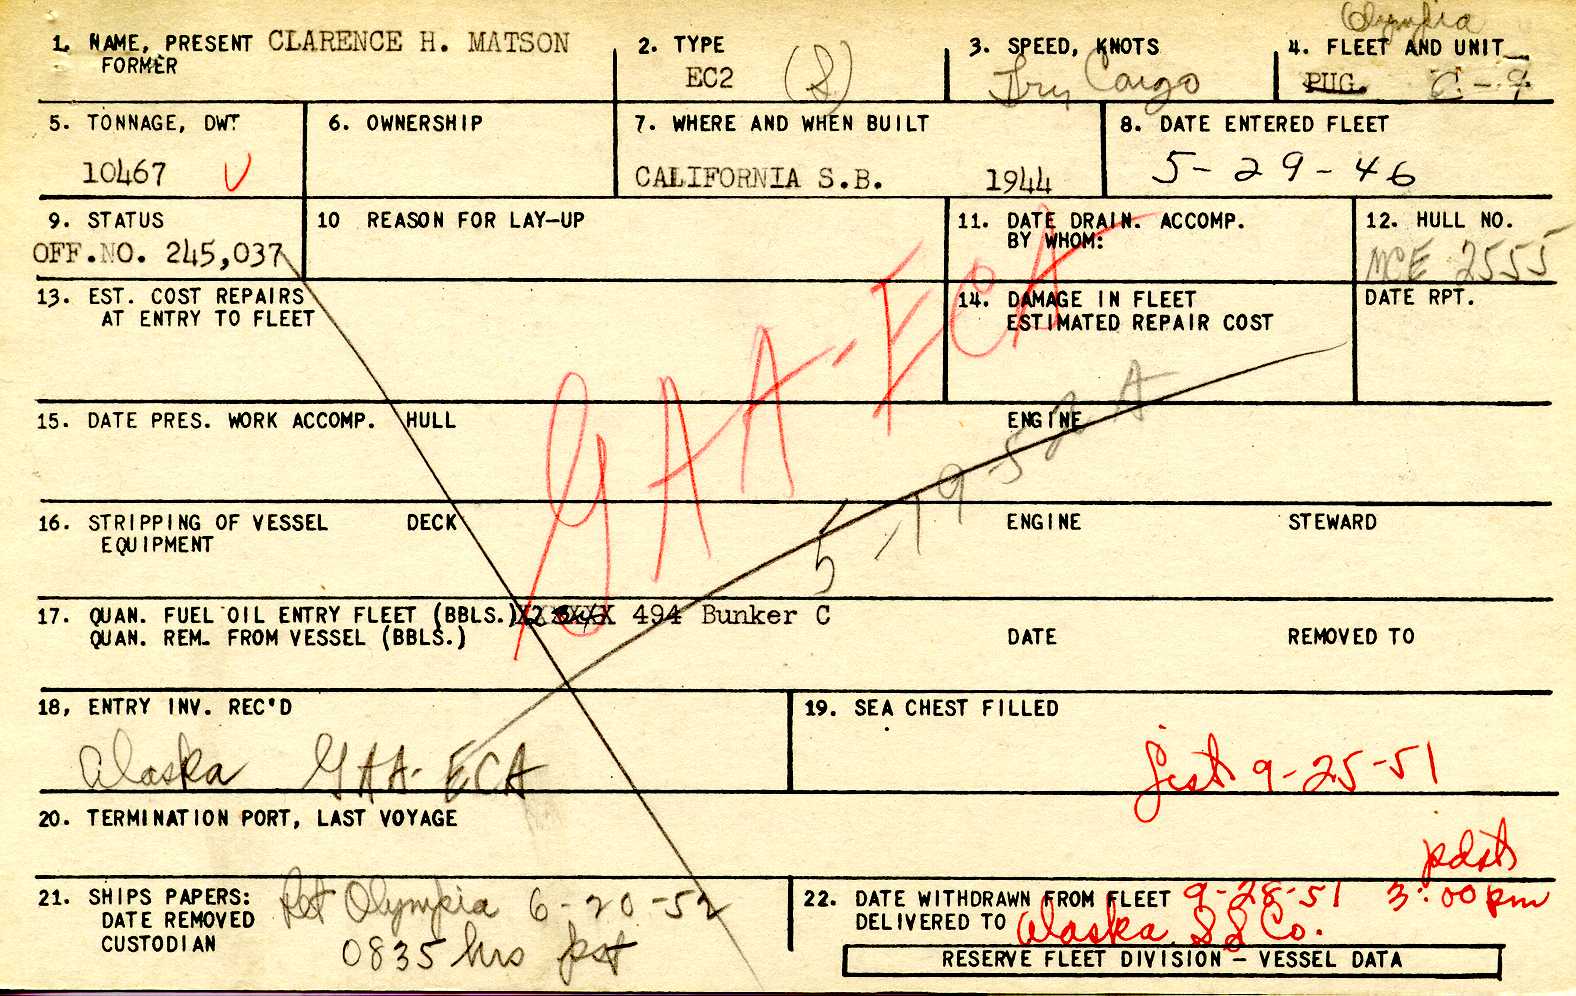 Olympia
1. NAME, PRESENT CLARENCE H. MATSON
FORMER
2. TYPE
EC2 (S)
3. SPEED, KNOTS
Dry Cargo
4. FLEET AND UNIT
PUG. C-9
5. TONNAGE, DWT
10467 V
6. OWNERSHIP
7. WHERE AND WHEN BUILT
CALIFORNIA S.B. 1944
8. DATE ENTERED FLEET
5-29-46
9. STATUS
OFF.NO. 245,037
10 REASON FOR LAY-UP
11. DATE DRAIN. ACCOMP.
BY WHOM:
12. HULL NO.
MCE 2555
13. EST. COST REPAIRS
AT ENTRY TO FLEET
14. DAMAGE IN FLEET
ESTIMATED REPAIR COST
DATE RPT.
GAA-ECA
15. DATE PRES. WORK ACCOMP. HULL ENGINE
5-19-52 A
16. STRIPPING OF VESSEL DECK ENGINE STEWARD
EQUIPMENT
17. QUAN. FUEL OIL ENTRY FLEET (BBLS.) 494 Bunker C
QUAN. REM. FROM VESSEL (BBLS.) DATE REMOVED TO
18, ENTRY INV. REC'D
Alaska GAA-ECA
19. SEA CHEST FILLED
9-25-51
20. TERMINATION PORT, LAST VOYAGE
pdst
21. SHIPS PAPERS:
DATE REMOVED
CUSTODIAN
Ret Olympia 6-20-52
0835 hrs pst
22. DATE WITHDRAWN FROM FLEET 9-28-51 3:00pm
DELIVERED TO Alaska SS Co.
RESERVE FLEET DIVISION - VESSEL DATA